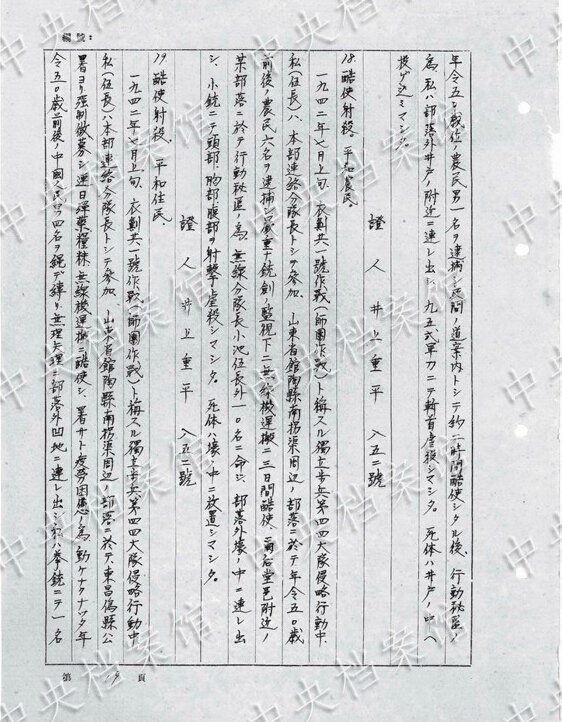 編號：
年令五〇歳位ノ農民男一名ヲ逮捕シ夜間ノ道案内トシテ約二時間酷使シタル後、行動秘匿ノ
為、私ハ部落外井戸ノ附近ニ連レ出シ、九五式軍刀ニテ斬首虐殺シマシタ。死体ハ井戸ノ中ヘ
投ゲ込ミマシタ。
證人 井上重平 八五二號
18. 酷使射殺、平和農民、
一九四二年七月上旬、衣剿共一號作戰(師團作戰)ト稱スル獨立歩兵第四四大隊侵略行動中、
私(伍長)ハ、本部連絡分隊長トシテ参加、山東省館陶縣南拐渠周辺ノ部落ニ於テ年令五〇歳
前後ノ農民六名ヲ逮捕シ嚴重ナ銃剣ノ監視下ニ無線機運搬ニ三日間酷使、堂邑附近ノ
某部落ニ於テ行動秘匿ノ為、無線分隊長小池伍長外一〇名ニ命ジ、部落外壕ノ中ニ連レ出
シ、小銃ニテ頭部、胸部腹部ヲ射撃虐殺シマシタ。死体ハ壕ノ中ニ放置シマシタ。
證人 井上重平 八五二號
19. 酷使射殺、平和住民、
一九四二年七月上旬、衣剿共一號作戰(師團作戰)ト稱スル獨立歩兵第四四大隊侵略行動中、
私(伍長)ハ本部連絡分隊長トシテ参加、山東省館陶縣南拐渠周辺ノ部落ニ於テ、東昌縣公
署ヨリ強制徴募シ連日彈藥、糧秣、無線機運搬ニ酷使シ、暑サト疲勞困憊ノ為動ケナクナッタ年
令五〇歳前後ノ中國人民男四名ヲ縄デ縛リ無理矢理ニ部落外凹地ニ連レ出シ、私ハ拳銃ニテ一名
第 19 頁
中央档案馆